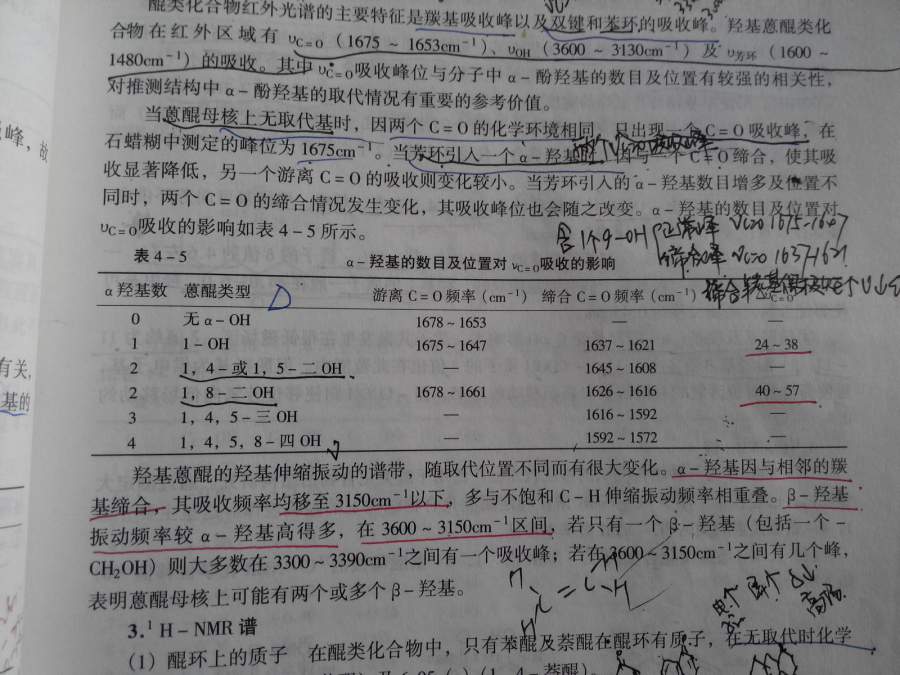 醌类化合物红外光谱的主要特征是羰基吸收峰以及双键和苯环的吸收峰。羟基蒽醌类化
合物在红外区域有 υC=O (1675 ~ 1653cm⁻¹)、υOH (3600 ~ 3130cm⁻¹) 及 υ芳环 (1600 ~
1480cm⁻¹) 的吸收。其中 υC=O吸收峰位与分子中 α-酚羟基的数目及位置有较强的相关性,
对推测结构中 α-酚羟基的取代情况有重要的参考价值。
当蒽醌母核上无取代基时,因两个 C=O 的化学环境相同,只出现一个 C=O 吸收峰,在
石蜡糊中测定的峰位为 1675cm⁻¹。当芳环引入一个 α-羟基时,因与一个 C=O 缔合,使其吸
收显著降低,另一个游离 C=O 的吸收则变化较小。当芳环引入的 α-羟基数目增多及位置不
同时,两个 C=O 的缔合情况发生变化,其吸收峰位也会随之改变。α-羟基的数目及位置对
υC=O吸收的影响如表 4-5 所示。
含1个α-OH 正常峰 νC=O 1675-1647
缔合峰 νC=O 1637-1621
表 4-5 α-羟基的数目及位置对 υC=O吸收的影响
α 羟基数 蒽醌类型 游离 C=O 频率 (cm⁻¹) 缔合 C=O 频率 (cm⁻¹) C=O
0 无 α-OH 1678 ~ 1653 — —
1 1-OH 1675 ~ 1647 1637 ~ 1621 24 ~ 38
2 1,4-或 1,5-二 OH — 1645 ~ 1608 —
2 1,8-二 OH 1678 ~ 1661 1626 ~ 1616 40 ~ 57
3 1,4,5-三 OH — 1616 ~ 1592 —
4 1,4,5,8-四 OH — 1592 ~ 1572 —
羟基蒽醌的羟基伸缩振动的谱带,随取代位置不同而有很大变化。α-羟基因与相邻的羰
基缔合,其吸收频率均移至 3150cm⁻¹以下,多与不饱和 C-H 伸缩振动频率相重叠。β-羟基
振动频率较 α-羟基高得多,在 3600 ~ 3150cm⁻¹区间,若只有一个 β-羟基(包括一个 -
CH₂OH)则大多数在 3300 ~ 3390cm⁻¹之间有一个吸收峰;若在 3600 ~ 3150cm⁻¹之间有几个峰,
表明蒽醌母核上可能有两个或多个 β-羟基。
3. ¹H-NMR 谱
(1) 醌环上的质子 在醌类化合物中,只有苯醌及萘醌在醌环有质子,在无取代时化学